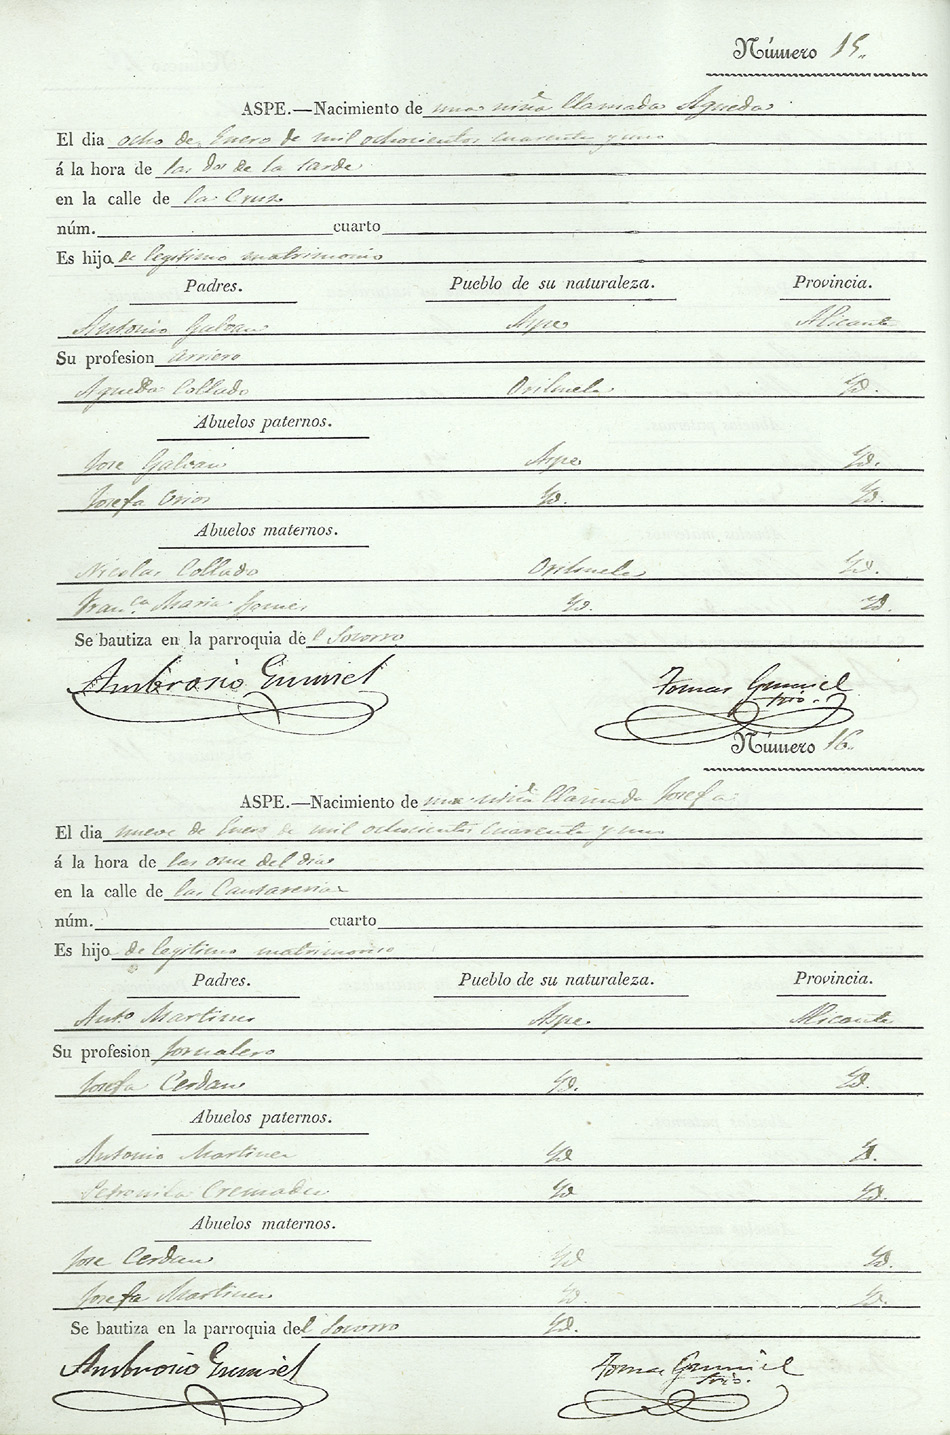 Número 15.
ASPE.—Nacimiento de una niña llamada Agueda
El dia ocho de Enero de mil ochocientos cuarenta y uno
á la hora de las dos de la tarde
en la calle de la Cruz
núm. cuarto
Es hijo de legitimo matrimonio
Padres. Pueblo de su naturaleza. Provincia.
Antonio Galvan Aspe Alicante
Su profesion arriero
Agueda Collado Orihuela Yd.
Abuelos paternos.
Jose Galvan Aspe Yd.
Josefa Yd. Yd.
Abuelos maternos.
Nicolas Collado Orihuela Yd.
Fran.ca Maria Yd. Yd.
Se bautiza en la parroquia del Socorro
Ambrosio Tomas
Número 16.
ASPE.—Nacimiento de una niña llamada Josefa
El dia nueve de Enero de mil ochocientos cuarenta y uno
á la hora de las once del dia
en la calle de las
núm. cuarto
Es hijo de legitimo matrimonio
Padres. Pueblo de su naturaleza. Provincia.
Ant.o Martinez Aspe Alicante
Su profesion Jornalero
Josefa Cerdan Yd. Yd.
Abuelos paternos.
Antonio Martinez Yd Yd.
Petronila Cremades Yd Yd.
Abuelos maternos.
Jose Cerdan Yd Yd.
Josefa Martinez Yd. Yd.
Se bautiza en la parroquia del Socorro Yd.
Ambrosio Tomas